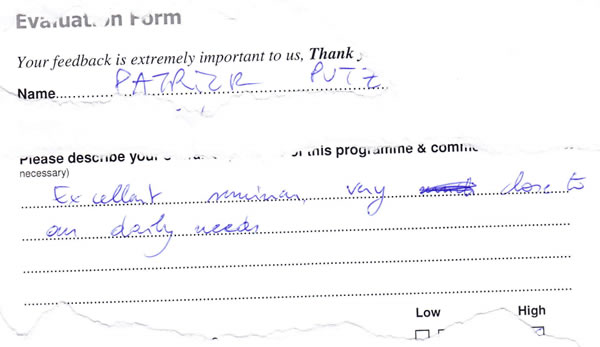 Evaluation Form
Your feedback is extremely important to us, Thank
Name.......... PATRIZR PUTZ
Please describe your of this programme & comme
necessary)
Excellent seminar, very close to
our daily needs
Low High